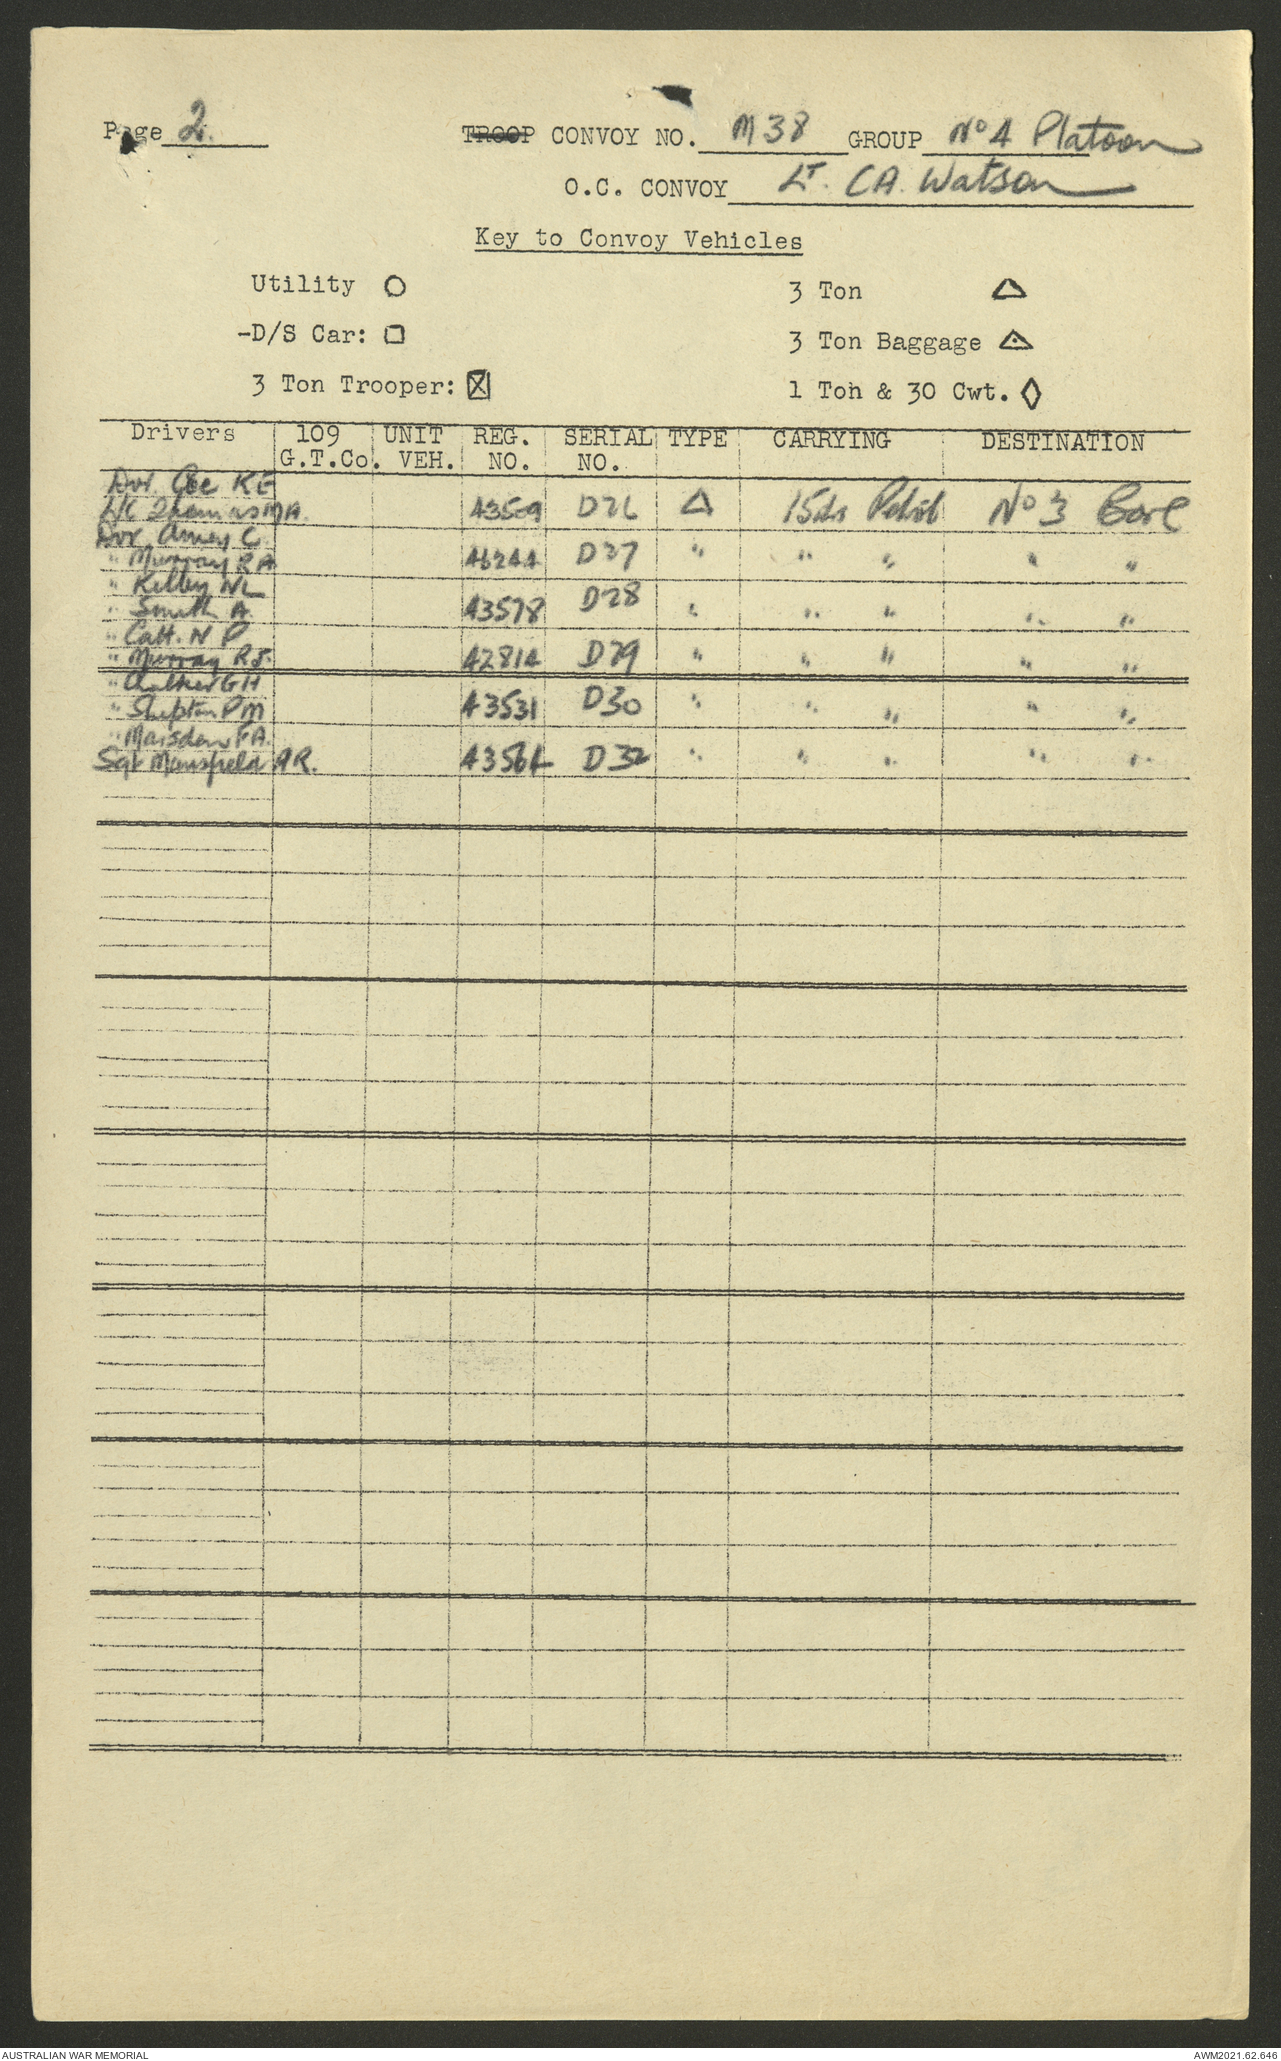 Page 2.
TROOP CONVOY NO. M38 GROUP No 4 Platoon
O.C. CONVOY Lt. CA. Watson
Key to Convoy Vehicles
Utility ○ 3 Ton △
-D/S Car: □ 3 Ton Baggage
3 Ton Trooper: 1 Ton & 30 Cwt. ◊
Drivers 109 G.T.Co. UNIT VEH. REG. NO. SERIAL NO. TYPE CARRYING DESTINATION
Dvr. Coe KE
L/C Thomas MA. 43509 D26 △ Petrol No 3 Bore
Dvr. Amey C.
" Murray RA 46244 D27 " " " " "
" Kelley NL
" Smith A. 43578 D28 " " " " "
" Catt. N P
" Murray RJ. 42814 D29 " " " " "
" Chalker GH
" Shepton PM 43531 D30 " " " " "
" Marsden FA.
Sgt Mansfield AR. 43564 D32 " " " " "
AUSTRALIAN WAR MEMORIAL AWM2021.62.646